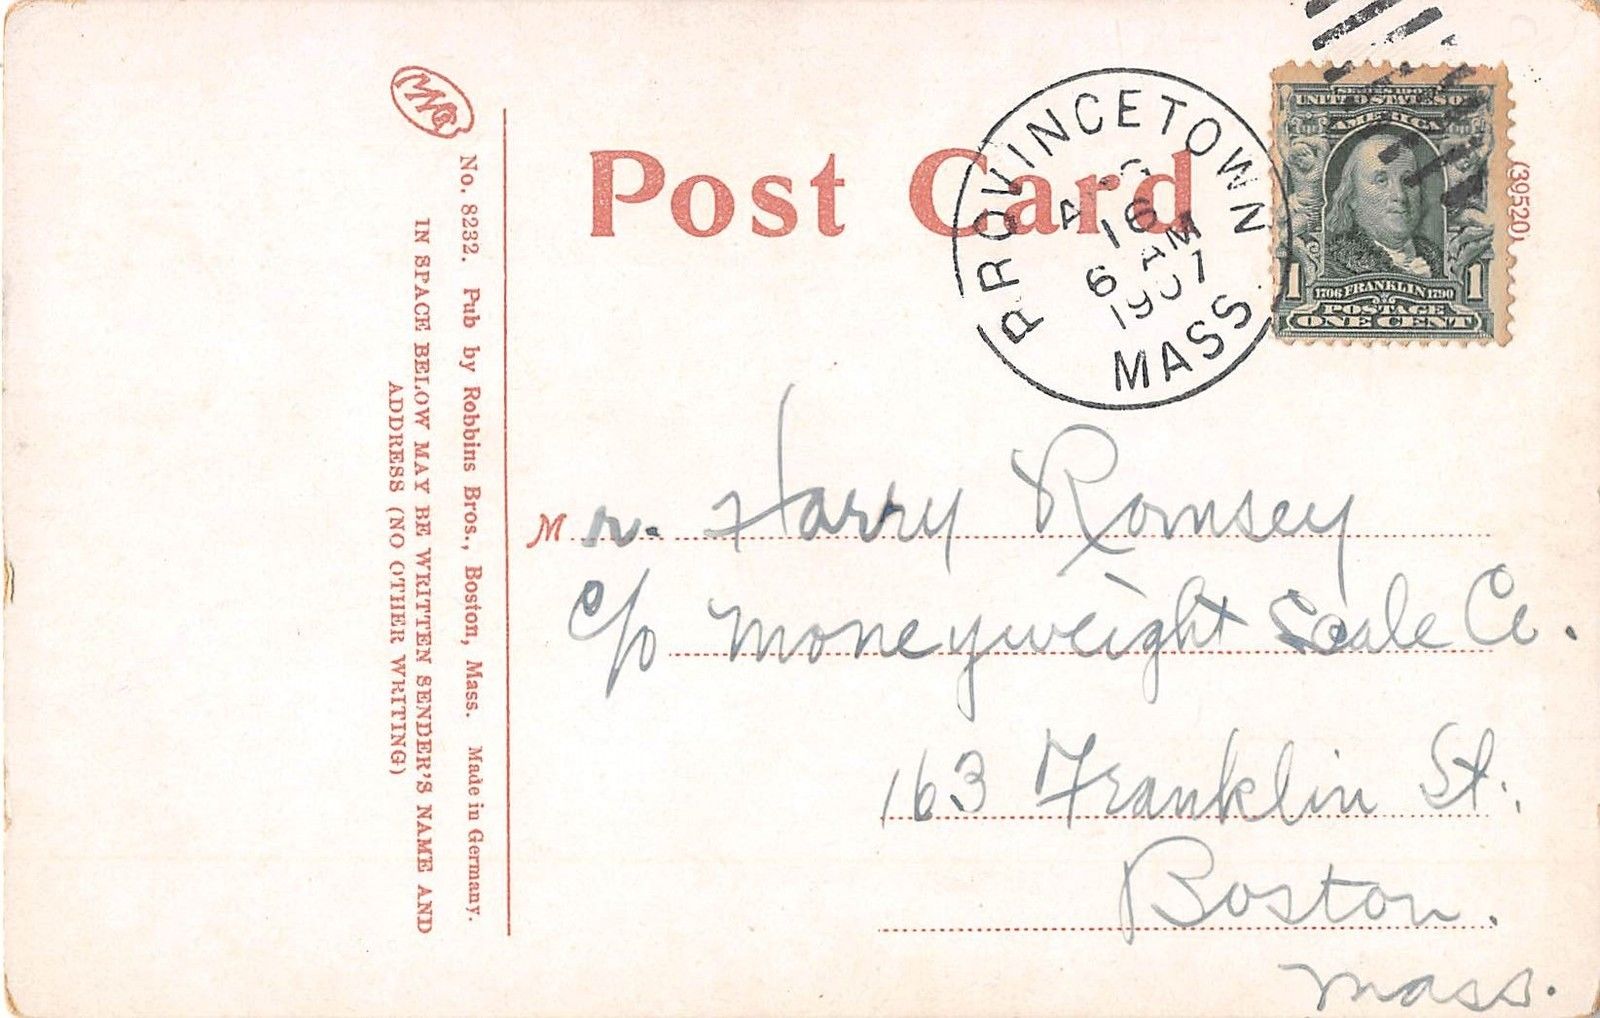 Post Card
PROVINCETOWN
16
6 AM
1907
MASS.
SERIES 1902
UNITED STATES OF
AMERICA
1 1
1706 FRANKLIN 1790
POSTAGE
ONE CENT
(39520)
No. 8232. Pub by Robbins Bros., Boston, Mass. Made in Germany.
IN SPACE BELOW MAY BE WRITTEN SENDER'S NAME AND
ADDRESS (NO OTHER WRITING)
Mr. Harry Romsey
c/o Moneyweight Scale Co.
163 Franklin St.,
Boston.
Mass.